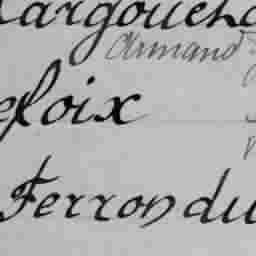 Largouch
Armand
efoix
Ferron du